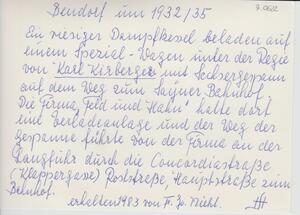 Bendorf um 1932/35
Ein riesiger Dampfkessel beladen auf
einem Spezial-Wagen unter der Regie
von Karl Kirberger mit Sechsergespann
auf dem Weg zum Sayner Bahnhof.
Die Firma Feld und Hahn hatte dort
eine Verladeanlage und der Weg der
Gespanne führte von der Firma an der
Langfuhr durch die Concordiastraße
(Klappergasse) Poststraße, Hauptstraße zum
Bahnhof.
erhalten 1983 von